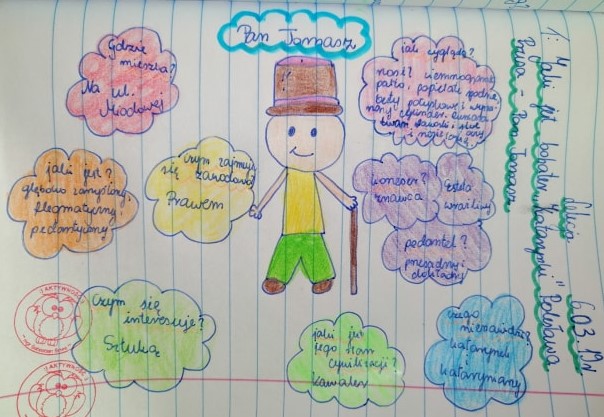 Pan Tomasz
Gdzie
mieszka?
Na ul.
Miodowej
jaki wygląda?
nosił ciemnogranatowe
palto, popielate spodnie,
buty połyskowe i wypło
cylinder
twarz
i nosił
jaki jest?
głęboko zamyślony,
flegmatyczny
pedantyczny
czym zajmuje
się zawodowo?
Prawem
koneser?
znawca
esteta
wrażliwy
pedantel?
przesadny i
dokładny
Czym się
interesuje?
Sztuką
jaki jest
jego stan
cywilizacji?
Kawaler
czego
nienawidzi?
katarynek
i
katarymany
Lekcja 6.03.19r.
1: Jaki jest bohater „Katarynki" Bolesława
Prusa - Pan Tomasz